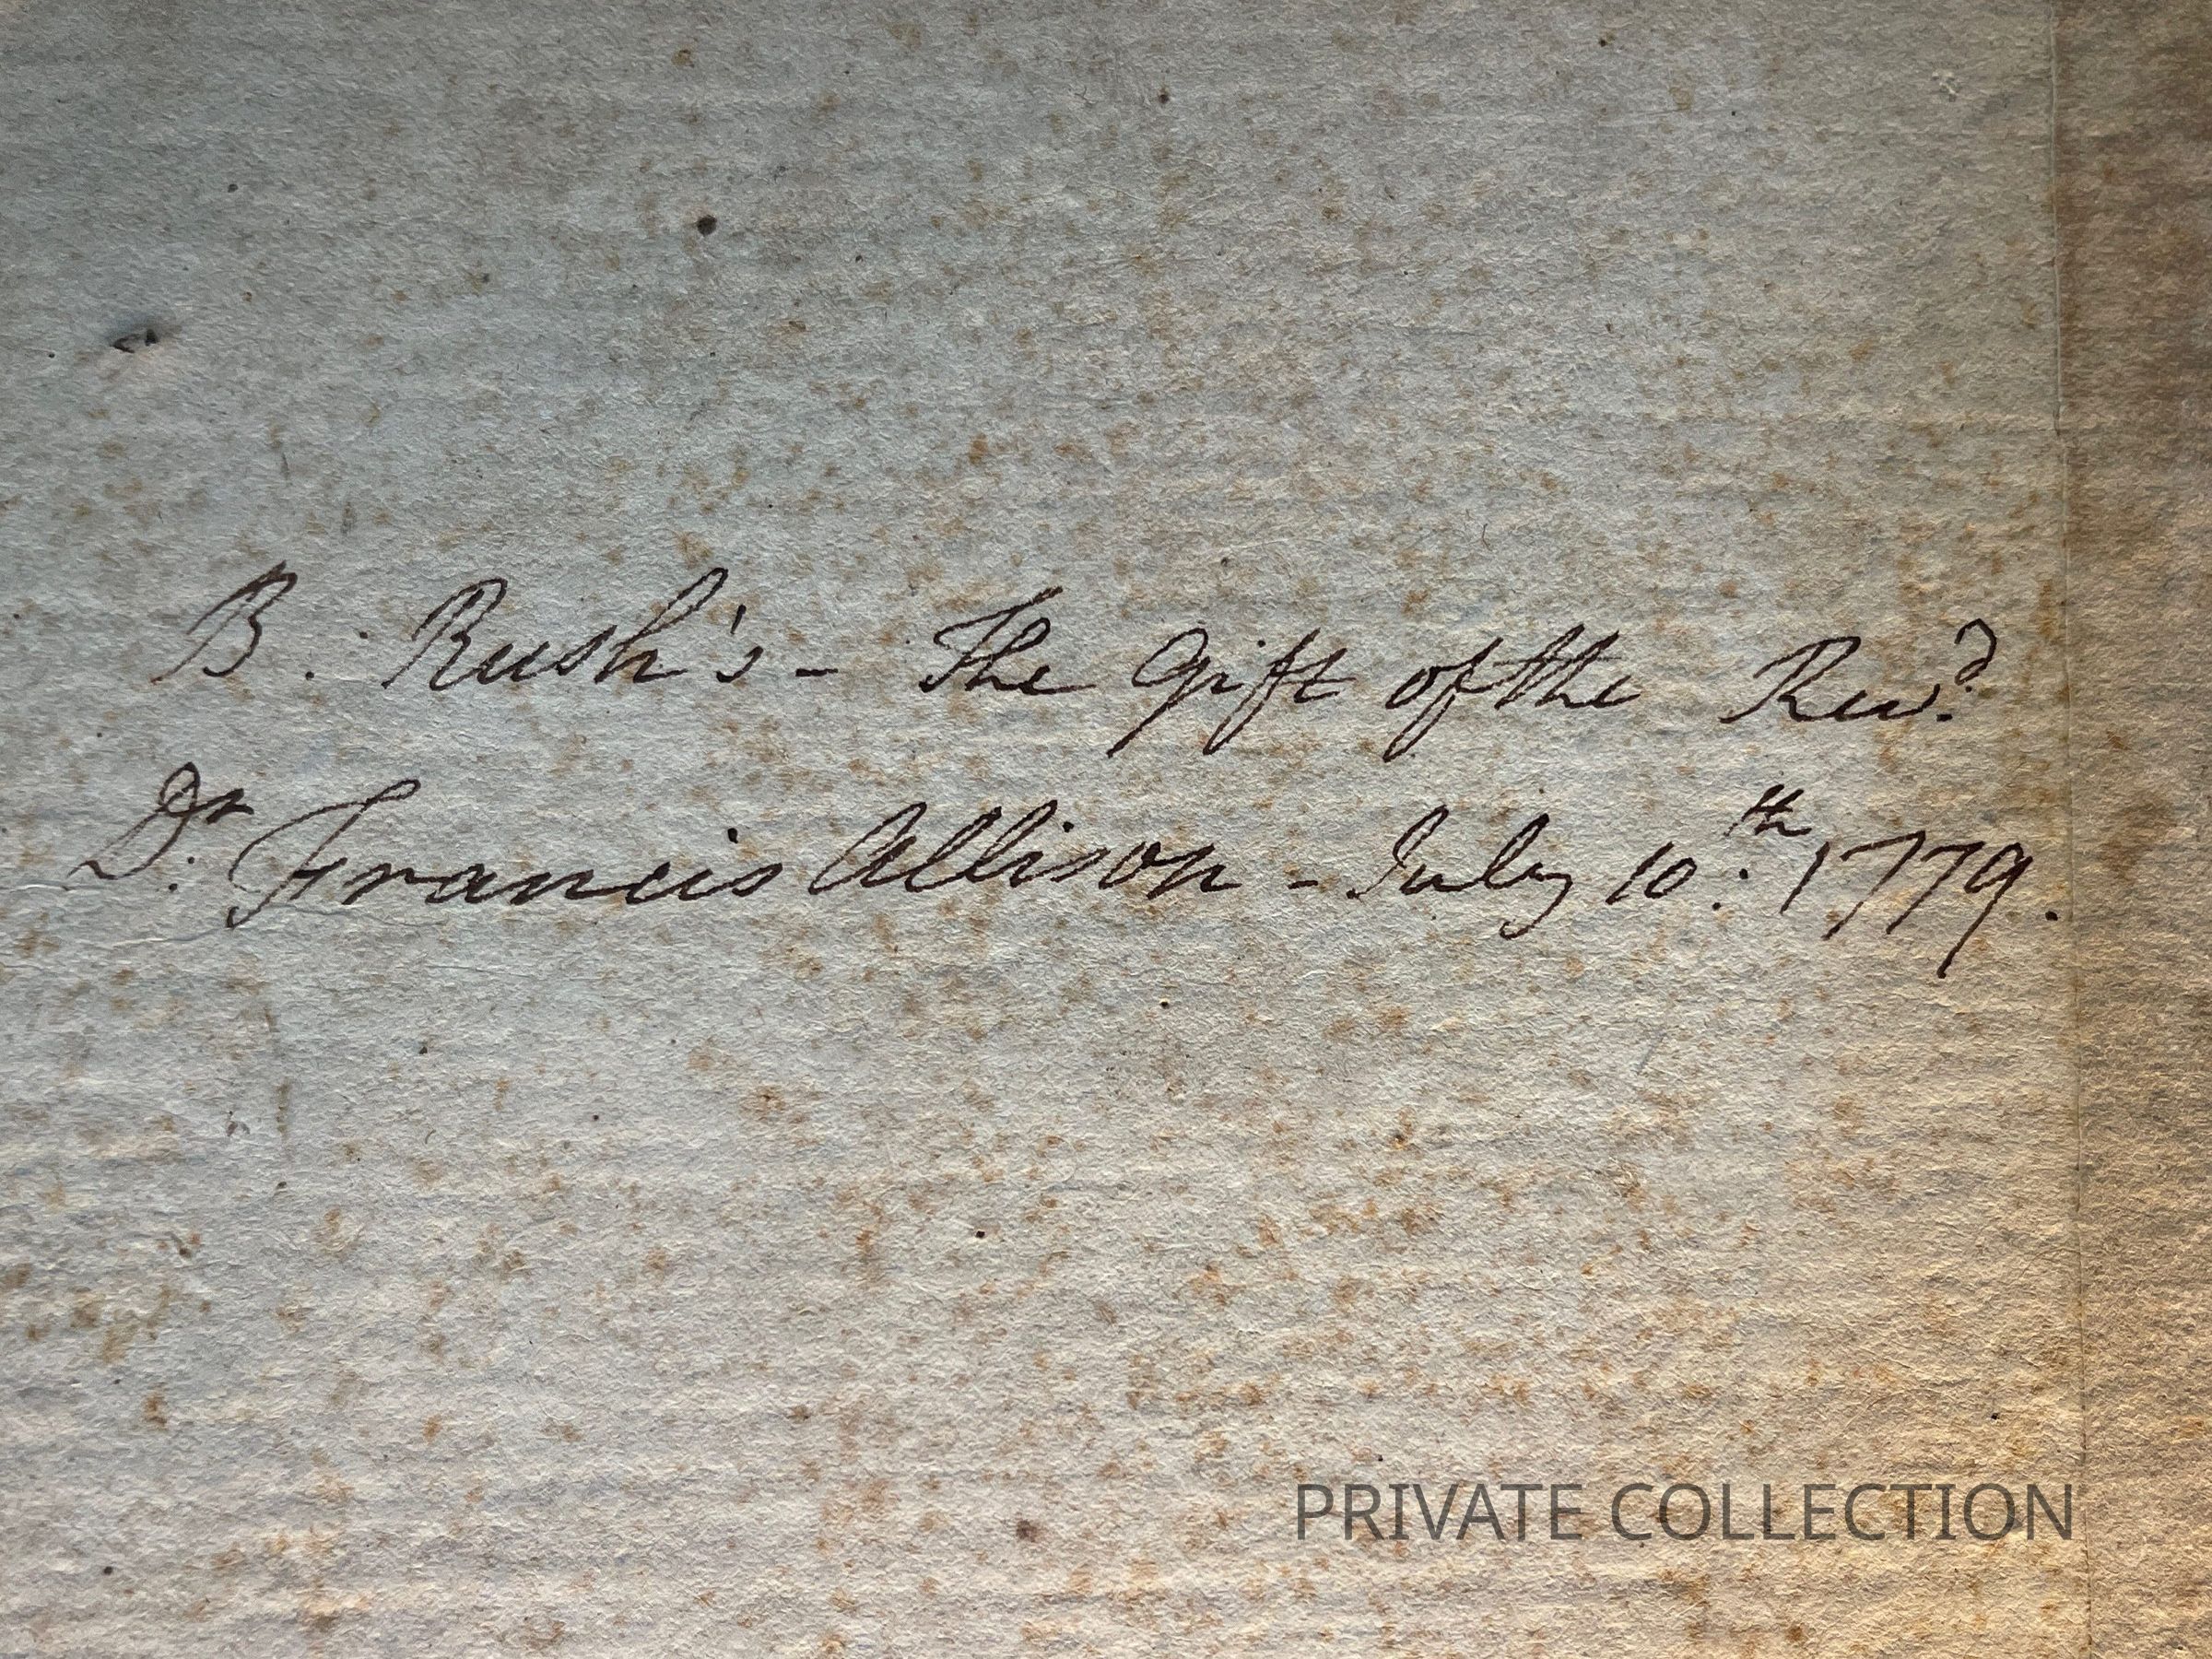 B. Rush's - The gift of the Revd.
Dr. Francis Allison - July 10th. 1779.
PRIVATE COLLECTION